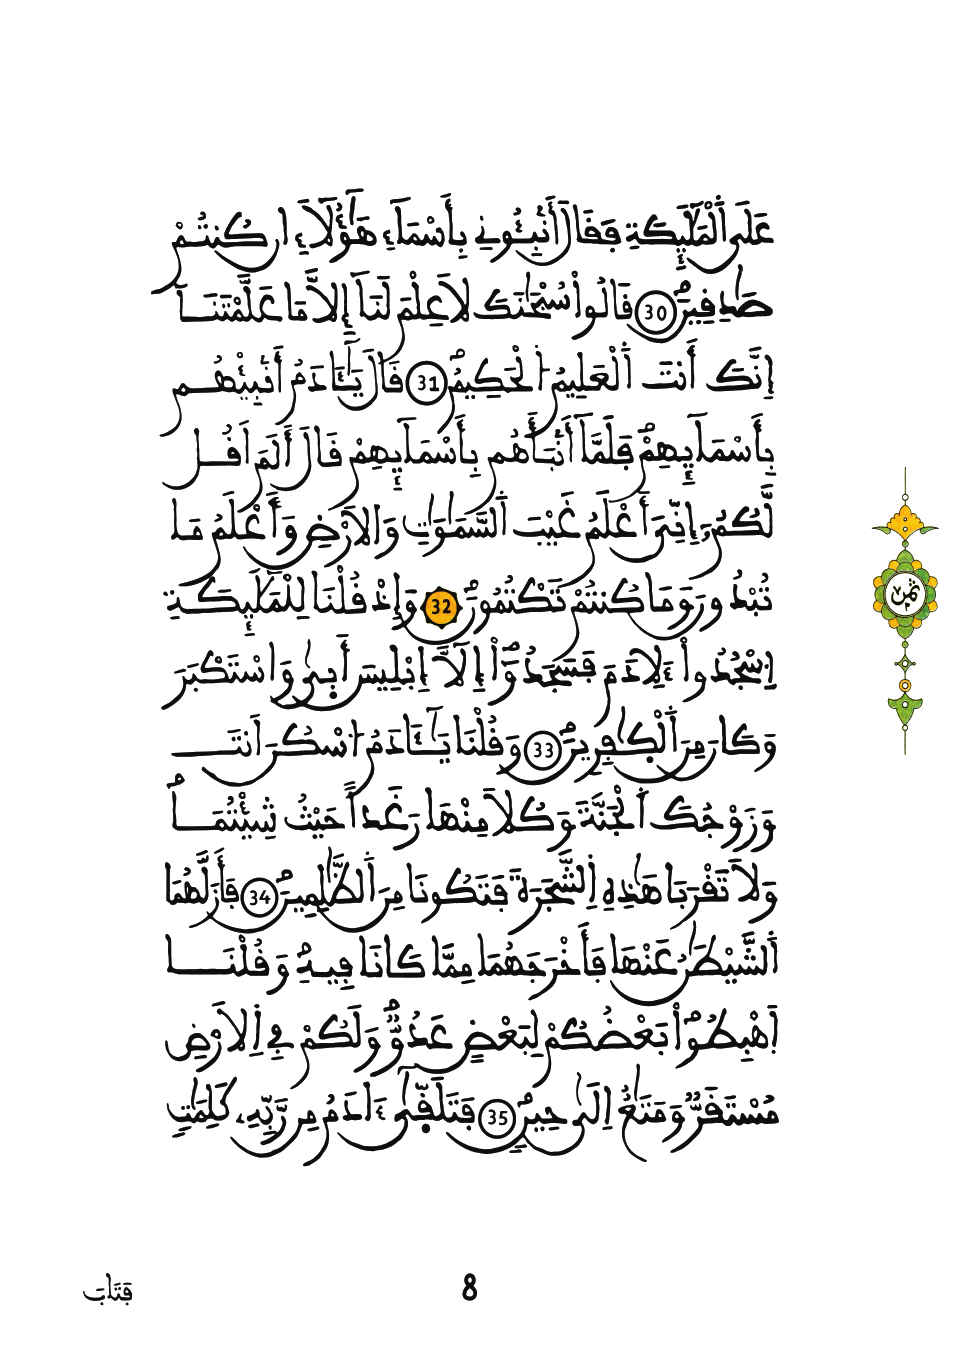 عَلَى اَلْمَلَٰٓئِكَةِ فَقَالَ أَنۢبِـُٔونِے بِأَسْمَآءِ هَٰٓؤُلَآءِ ان كُنتُمْ
صَٰدِقِينَۖ 30 قَالُواْ سُبْحَٰنَكَ لَا عِلْمَ لَنَآ إِلَّا مَا عَلَّمْتَنَآ
إِنَّكَ أَنتَ اَلْعَلِيمُ اُلْحَكِيمُۖ 31 قَالَ يَٰٓـَٔادَمُ أَنۢبِئْهُم
بِأَسْمَآئِهِمْۖ فَلَمَّآ أَنۢبَأَهُم بِأَسْمَآئِهِمْ قَالَ أَلَمَ اَقُل
لَّكُمُۥٓ إِنِّيَ أَعْلَمُ غَيْبَ اَلسَّمَٰوَٰتِ وَالَارْضِ وَأَعْلَمُ مَا
تُبْدُونَ وَمَا كُنتُمْ تَكْتُمُونَۖ 32 وَإِذْ قُلْنَا لِلْمَلَٰٓئِكَةِ
اِسْجُدُواْ ءَلِادَمَ فَسَجَدُوٓاْ إِلَّآ إِبْلِيسَ أَبٜىٰ وَاسْتَكْبَرَ
وَكَانَ مِنَ اَلْكٰ۪فِرِينَۖ 33 وَقُلْنَا يَٰٓـَٔادَمُ اُسْكُنَ اَنتَ
وَزَوْجُكَ اَلْجَنَّةَ وَكُلَا مِنْهَا رَغَداً حَيْثُ شِئْتُمَاۖ
وَلَا تَقْرَبَا هَٰذِهِ اِلشَّجَرَةَ فَتَكُونَا مِنَ اَلظَّٰلِمِينَۖ 34 فَأَزَلَّهُمَا
اَلشَّيْطَٰنُ عَنْهَا فَأَخْرَجَهُمَا مِمَّا كَانَا فِيهِۖ وَقُلْنَا
اَهْبِطُواْۖ بَعْضُكُمْ لِبَعْضٍ عَدُوّٞۖ وَلَكُمْ فِے اِلَارْضِ
مُسْتَقَرّٞ وَمَتَٰعٌ اِلَىٰ حِينٖۖ 35 فَتَلَقّ۪ىٰٓ ءَادَمُ مِن رَّبِّهِۦ كَلِمَٰتٖ
ثمن
فَتَابَ
8